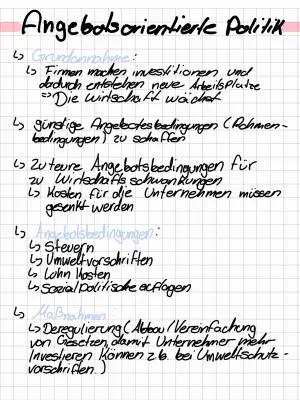 Angebotsorientierte Politik
↳ Grundannahme:
↳ Firmen machen investitionen und
dadurch entstehen neue Arbeitsplätze
⇒ Die wirtschaft wächst
↳ günstige Angebotesbedingungen (Rahmen-
bedingungen) zu schaffen
↳ Zu teure Angebotsbedingungen für
zu Wirtschaftsschwankungen
↳ Kosten für die Unternehmen müssen
gesenkt werden
↳ Angebotsbedingungen:
↳ Steuern
↳ Umweltvorschriften
↳ Lohn Kosten
↳ Sozialpolitische auflagen
↳ Maßnahmen:
↳ Deregulierung (Abbau/Vereinfachung
von Gesetzen, damit Unternehmer mehr
Investieren können z.b. bei Umweltschutz-
vorschriften.)